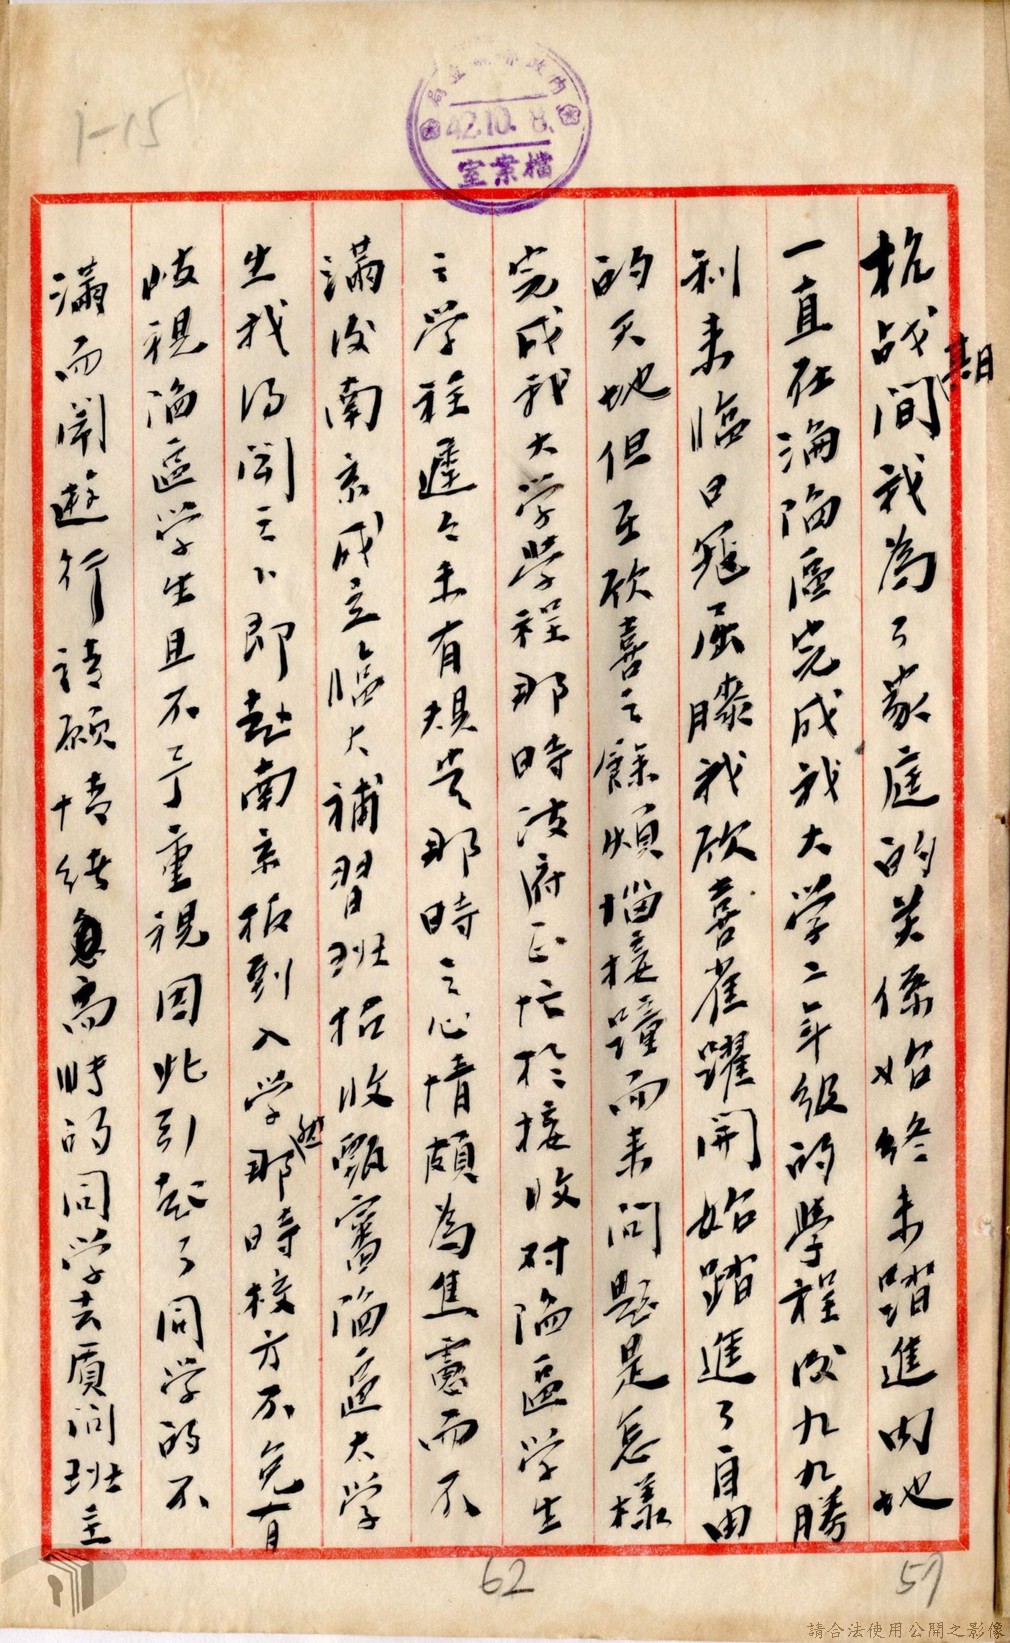 1-15
內政部調查局
42.10.8.
檔案室
抗战期間我為了家庭的关係始終未踏進内地
一直在淪陷區完成我大学二年級的學程後九九勝
利来臨日寇屈膝我欣喜雀躍開始踏進了自由
的天地但在欣喜之餘煩惱接踵而来问題是怎樣
完成我大学學程那時政府正忙於接收对陷區学生
之学程遲遲未有規定那時之心情頗為焦慮而不
滿後南京成立臨大補習班招收甄審陷區大学
生我得闻之下即赴南京报到入学然那時校方不免有
歧視陷區学生且不予重視因此引起了同学的不
滿而闹遊行請願情緒最高時的同学去質问班主
62
57
請合法使用公開之影像